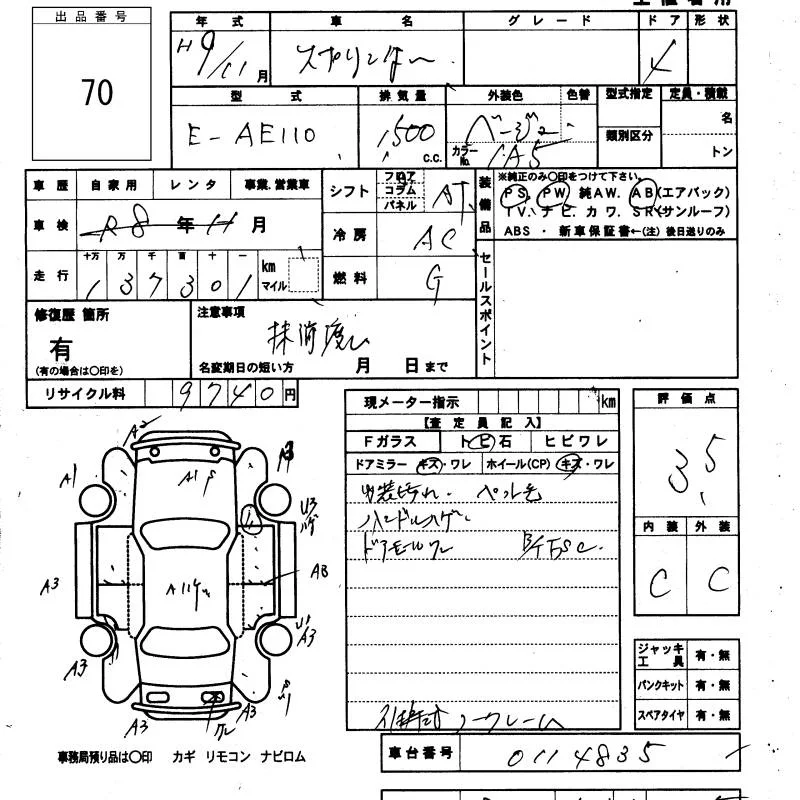 出品番号
70
年式 車名 グレード ドア 形状
H9/11月 スプリンター 4
型式 排気量 外装色 色替 型式指定 定員・積載
E-AE110 1,500 C.C. ベージュ 類別区分 名
カラーNo. 1A5 トン
車歴 自家用 レンタ 事業.営業車
車検 R8年11月
走行 十万 万 千 百 十 一
137301 km マイル
シフト フロア コラム パネル AT
冷房 AC
燃料 G
装備品
※純正のみ〇印をつけて下さい。
PS. PW. 純AW. AB(エアバック)
TV. ナビ. カワ. SR(サンルーフ)
ABS ・ 新車保証書←(注)後日送りのみ
セールスポイント
修復歴 箇所
有
(有の場合は〇印を)
注意事項
抹消渡し
名変期日の短い方 月 日まで
リサイクル料 9740円
現メーター指示 km
【査定員記入】
Fガラス トビ石 ヒビワレ
ドアミラー キズ・ワレ ホイール(CP) キズ・ワレ
内装汚れ. ペット毛
ハンドルハゲ.
ドアモールワレ
ノークレーム
評価点
3.5
内装 外装
C C
ジャッキ工具 有・無
パンクキット 有・無
スペアタイヤ 有・無
A2
A3
A1
A1
U3
A3
AB
U1
A3
A3
A3
A3
ワレ
事務局預り品は〇印 カギ リモコン ナビロム
車台番号 0114835